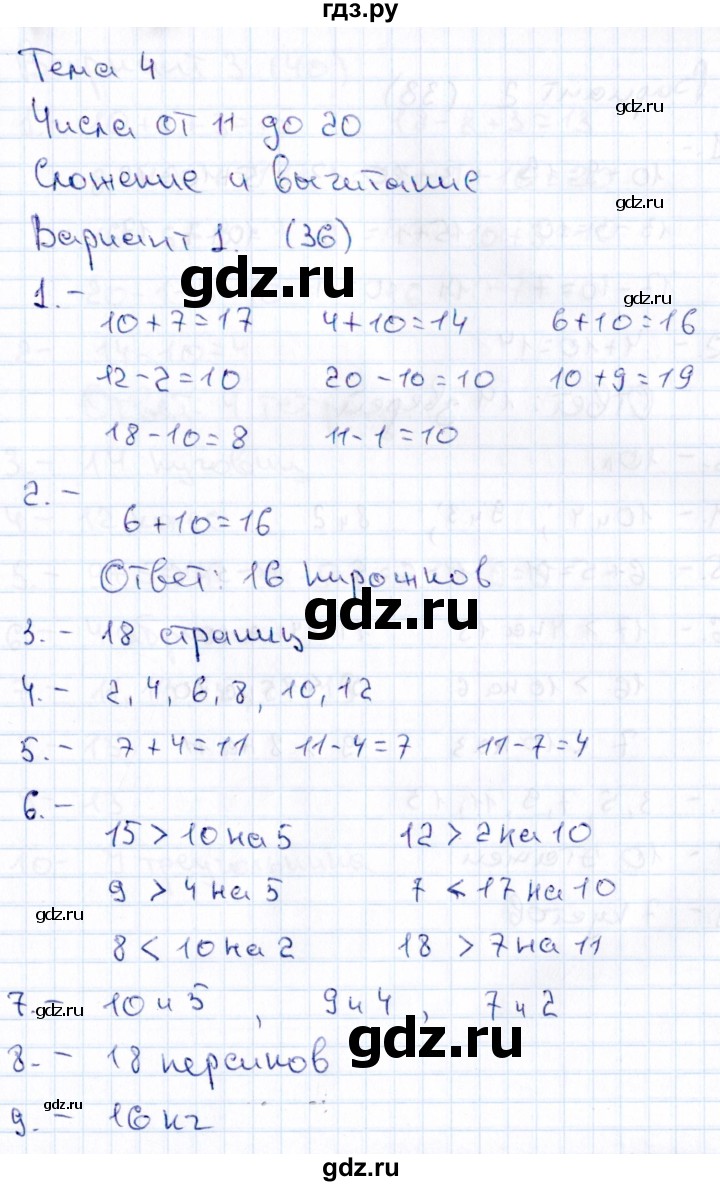 гдз.ру
Тема 4
gdz.ru
Числа от 11 до 20
Сложение и вычитание
gdz.ru
Вариант 1. (36)
gdz.ru
gdz.ru
1. -
10+7=17 4+10=14 6+10=16
12-2=10 20-10=10 10+9=19
18-10=8 11-1=10
2. -
6+10=16
Ответ: 16 пирожков
gdz.ru
3. - 18 страниц
4. - 2, 4, 6, 8, 10, 12
5. - 7+4=11 11-4=7 11-7=4
6. -
15 > 10 на 5 12 > 2 на 10
9 > 4 на 5 7 < 17 на 10
gdz.ru
gdz.ru
8 < 10 на 2 18 > 7 на 11
7. - 10 и 5, 9 и 4, 7 и 2
gdz.ru
gdz.ru
8. - 18 персиков
gdz.ru
9. - 16 кг
gdz.ru